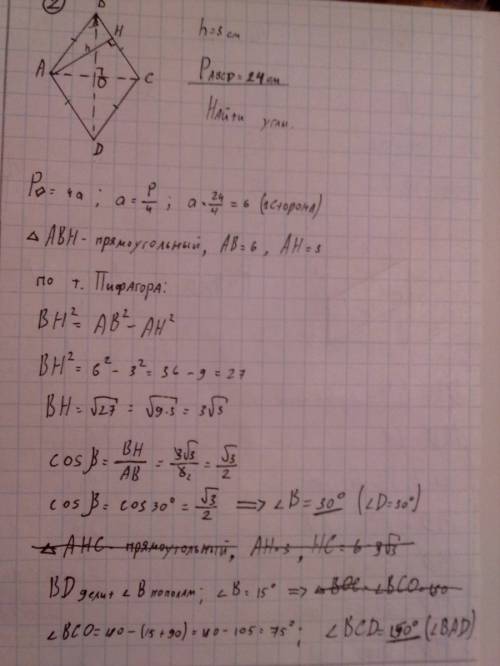 2
B
H
h
A
C
O
D
h=3 см
P ABCD = 24 см
Найти углы.
P◇ = 4a ; a = P/4 ; a = 24/4 = 6 (сторона)
△ ABH - прямоугольный, AB = 6 , AH = 3
по т. Пифагора:
BH² = AB² - AH²
BH² = 6² - 3² = 36 - 9 = 27
BH = √27 = √9·3 = 3√3
cos β = BH/AB = 3√3/6₂ = √3/2
cos β = cos 30° = √3/2 ⟹ ∠B = 30° (∠D = 30°)
△ AHC - прямоугольный, AH = 3 , HC = 6 - 3√3
BD делит ∠B пополам ; ∠B = 15° ⟹ △ BOC - ∠BCO = 180
∠BCO = 180 - (15 + 90) = 180 - 105 = 75° ; ∠BCD = 150° (∠BAD)